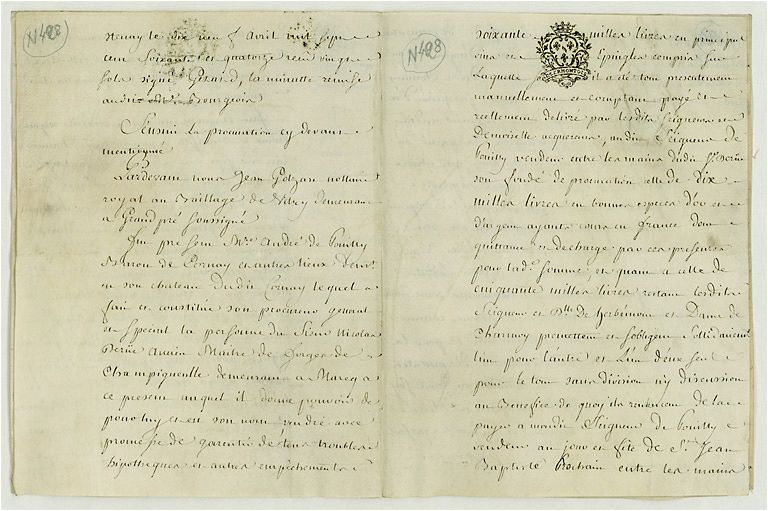 N498
nenay le dix neuf Avril mil sept
cent Soixante et quatorze recu vingt
sols signé Gerard, la minutte remise
audit Me Bourgeois
Ensuit la procuration cy devant
mentionnée
Pardevant nous Jean notaire
royal au Bailliage de Vitry demeurant
a Grand pré soussigné
fut present Mre André de Pouilly
Baron de Cornay et autres lieux demt
en son chateau dudit Cornay lequel a
fait et constitué son procureur general
et special la personne du Sieur Nicolas
ancien Maitre de forges de
Champigneulle demeurant a Marcq a
ce present auquel il donne pouvoir de
pour luy et en son nom vendre avec
promesse de garentie de tous troubles
hipotheques et autres empêchements
N498
soixante milles livres en principal
Epingles compris sur
Laquelle il a été tout presentement
manuellement et comptant payé et
reellement delivré par lesdits Seigneurs et
Demoiselle acquereurs, audit Seigneur de
Pouilly vendeur entre les mains dudit
son fondé de procuration celle de dix
milles livres en bonnes especes d'or et
d'argent ayants cours en france dont
quittance et decharge par ces presentes
pour ladte somme, et quant a celle de
cinquante milles livres restant lesdits
Seigneur et Dlle de Herbinon et Dame de
Charnoy promettent et s'obligent sollidairement
l'un pour l'autre et l'un d'eux seul
pour le tout sans division ny discussion
au Benefice de quoy ils renoncent de la
payer a mondit Seigneur de Pouilly
vendeur au jour et fête de St Jean
Baptiste Prochain entre les mains